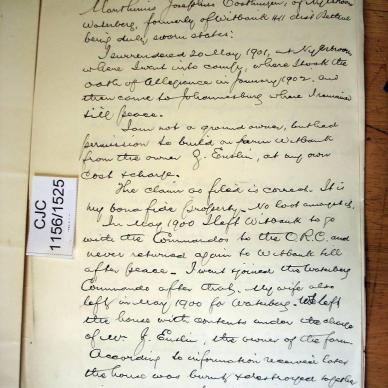 Marthinus Josephus Oosthuizen, of Nylstroom
Waterberg, formerly of Witbank 411 dist
being duly sworn states:
I surrendered 20 May 1901, at Nylstroom
where I went into camp, where I took the
oath of Allegiance in January 1902, and
then came to Johannesburg where I remained
till peace.
I am not a ground owner, but had
permission to build on farm Witbank
from the owner J. Euslin, at my own
cost & charge.
The claim as filed is correct. It is
my bona fide property. No loot amongst it.
In May 1900 I left Witbank to go
with the Commandos to the O.R.C. and
never returned again to Witbank till
after peace. I joined the Waterberg
Commando after that. My wife also
left in May 1900 for Waterberg. We left
the house with contents under the charge
of Mr J. Euslin, the owner of the farm.
According to information received later
the house was burnt & destroyed together
CJC
1156/1525